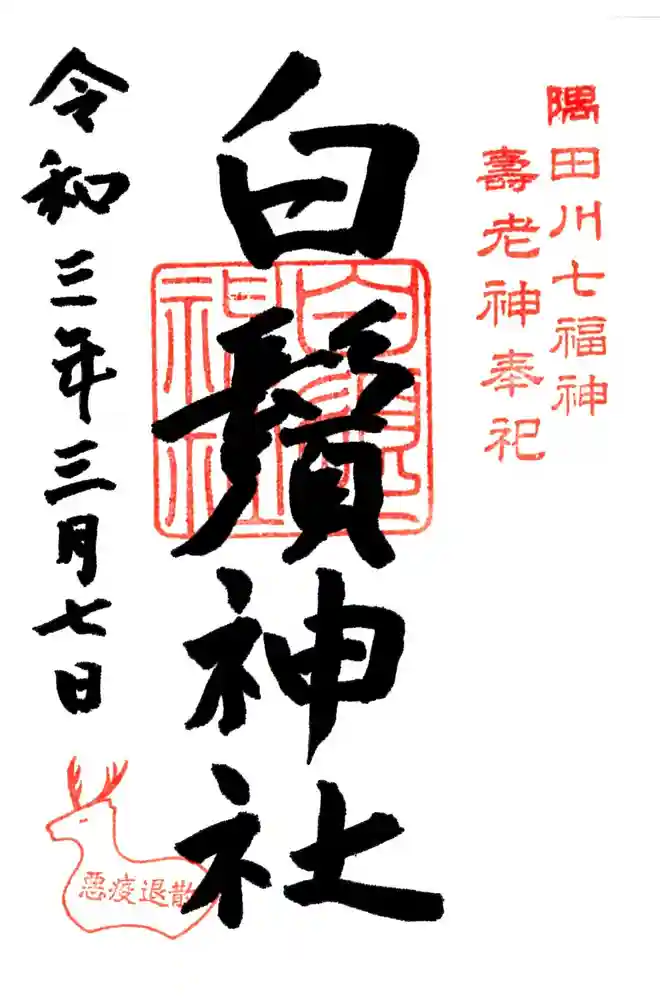 隅田川七福神
壽老神奉祀
白鬚神社
白鬚神社
令和三年三月七日
悪疫退散